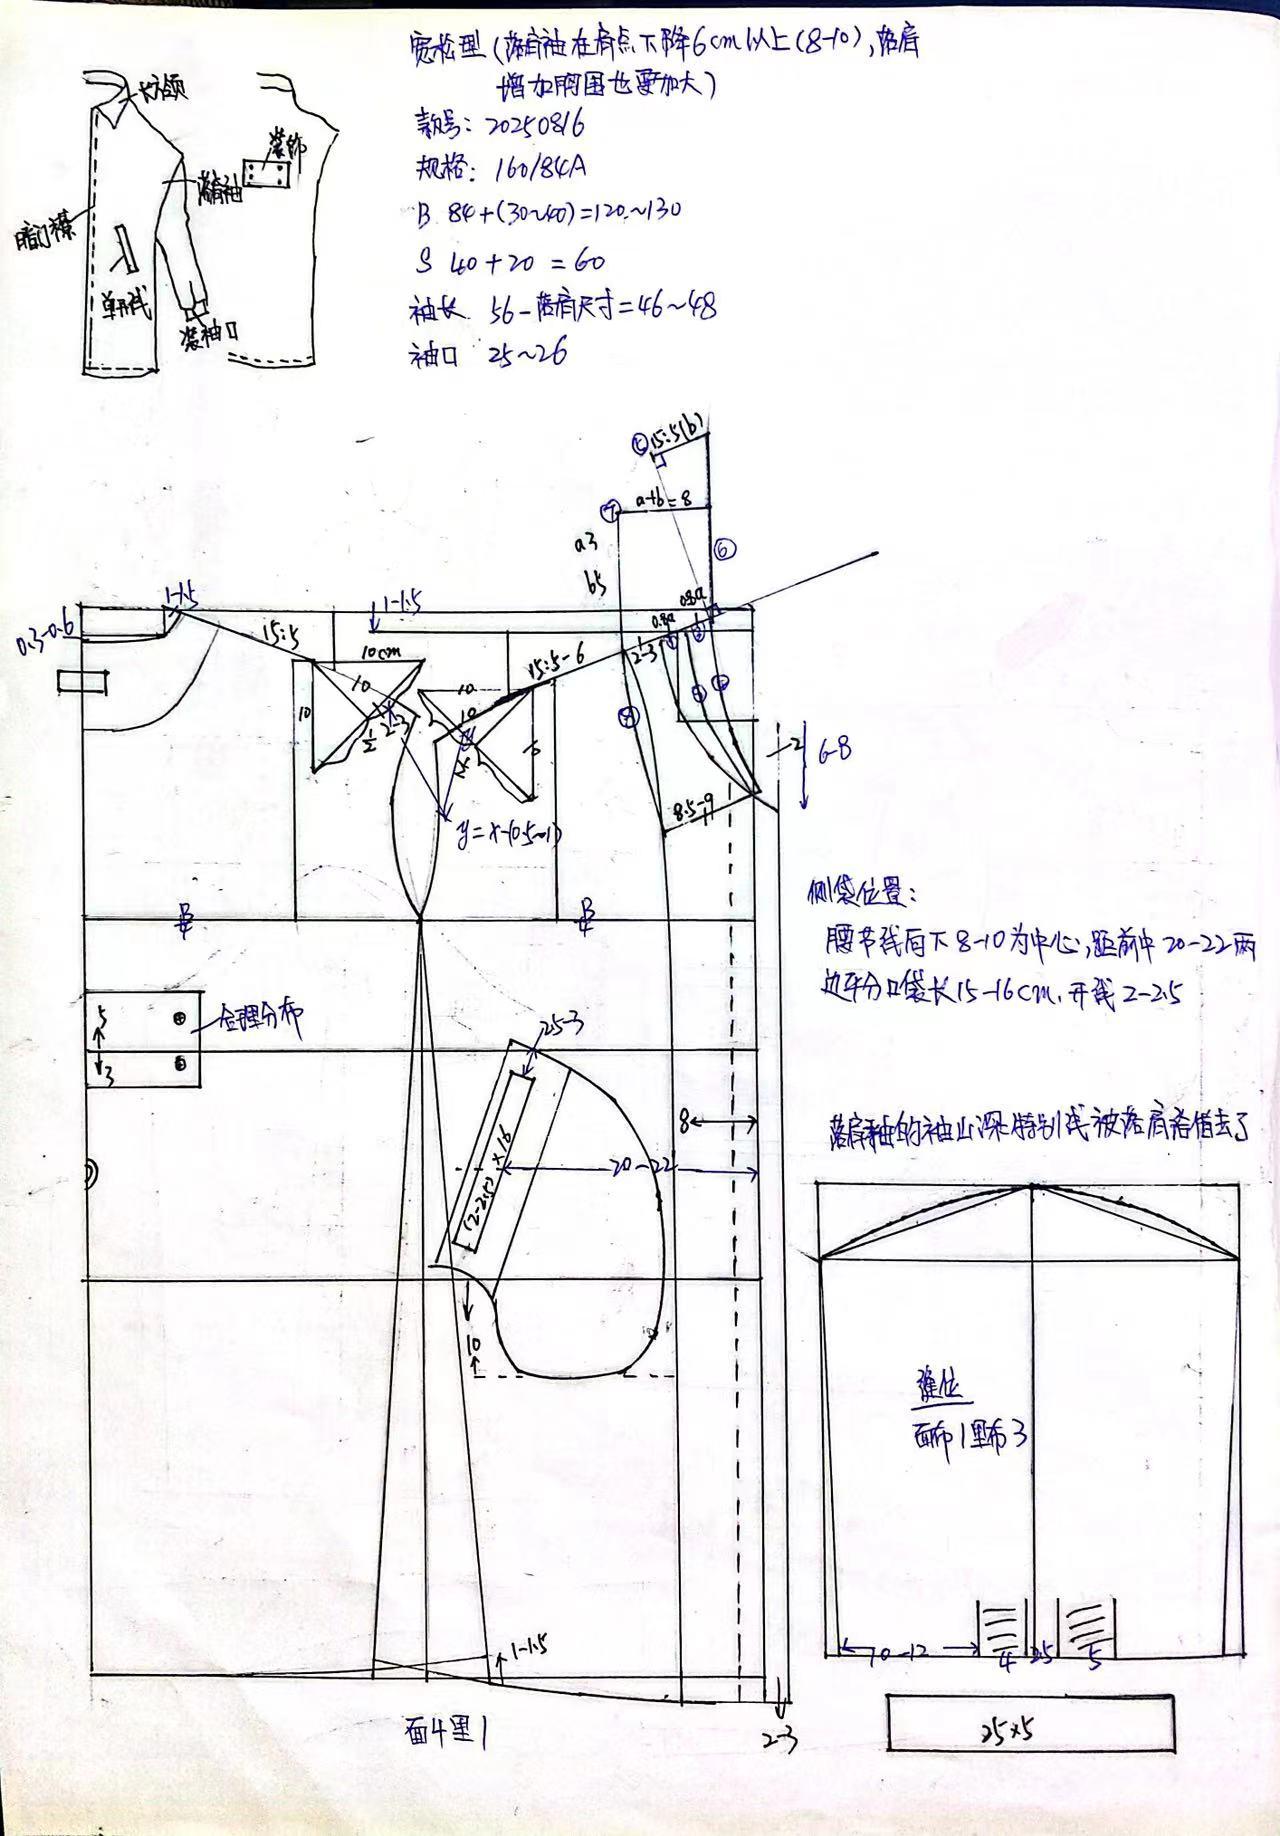 宽松型(落肩袖在肩点下降6cm以上(8-10),落肩
增加胸围也要加大)
款号: 20250816
规格: 160/84A
B 84+(30~40)=120~130
S 40+20=60
袖长 56-落肩尺寸=46~48
袖口 25~26
装饰
落肩袖
暗门襟
单开线
装袖口
⑤ 15:5(b)
⑦ a+b=8
a3
⑥
b5
1-1.5
1-1.5
0.8a
0.3-0.6
15:5
0.8a
10cm
15:5-6
1/2
2-3
10
10
10
10
1/2
2-3
2
6-8
8.5-9
y=x-(0.5~1)
B/4
B/4
侧袋位置:
腰节线后下8-10为中心,距前中20-22两
边平分口袋长15-16cm,开线2-2.5
5
3
合理分布
2.5-3
8
(2-2.5)×16
20-22
10
落肩袖的袖山深特别浅被落肩省借去了
缝位
面布1里布3
1-1.5
10-12
4
2.5
5
面4里1
2-3
25×5